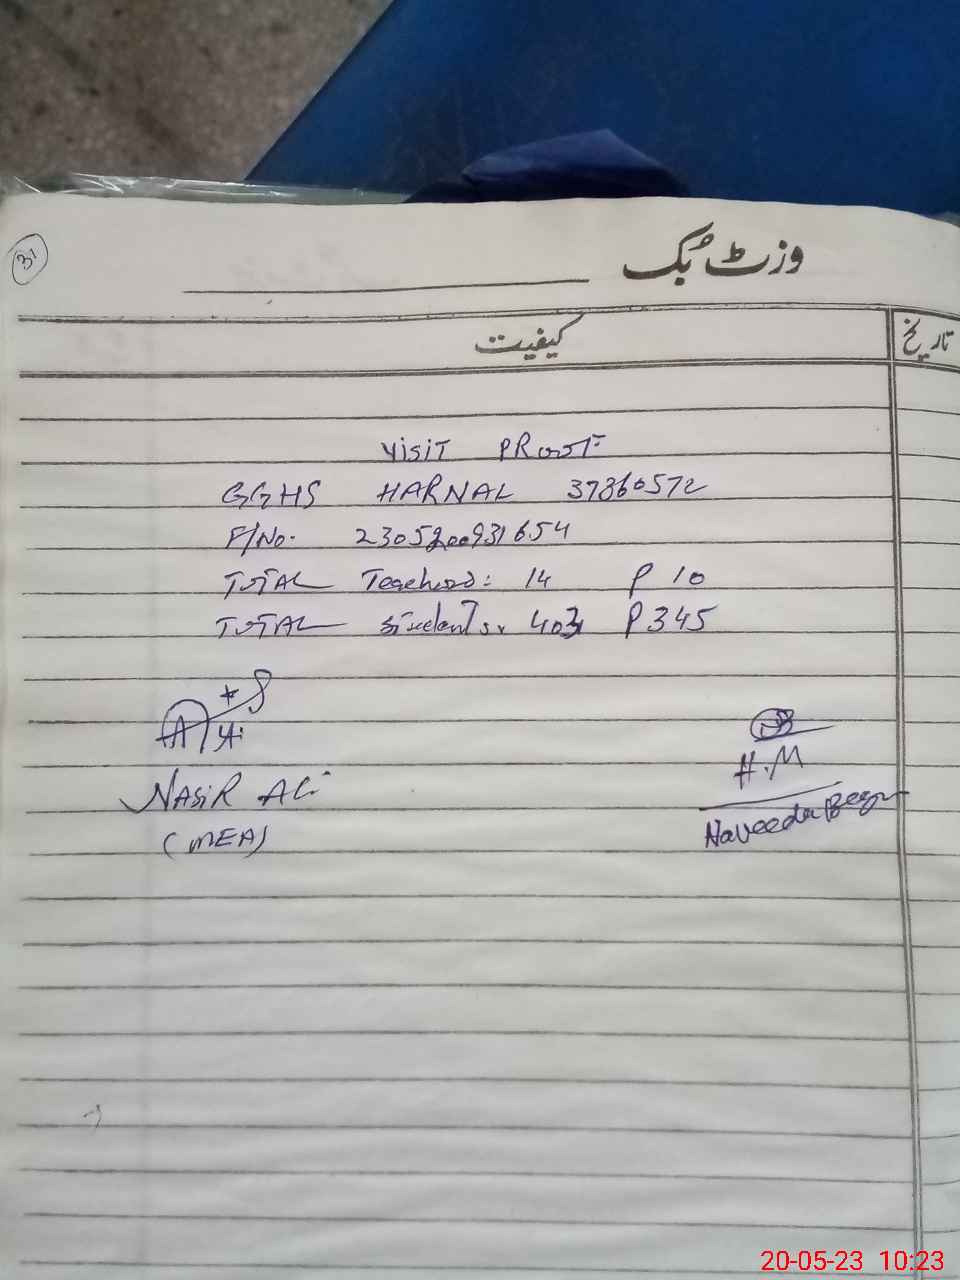 31
وزٹ بُک
کیفیت
تاریخ
VISIT PROOF
GGHS HARNAL 37360572
F/No. 2305200931654
TOTAL Teachers: 14 P 10
TOTAL Students: 403 P 345
NASIR ALi
(MEA)
H.M
Naveeda Begum
20-05-23 10:23